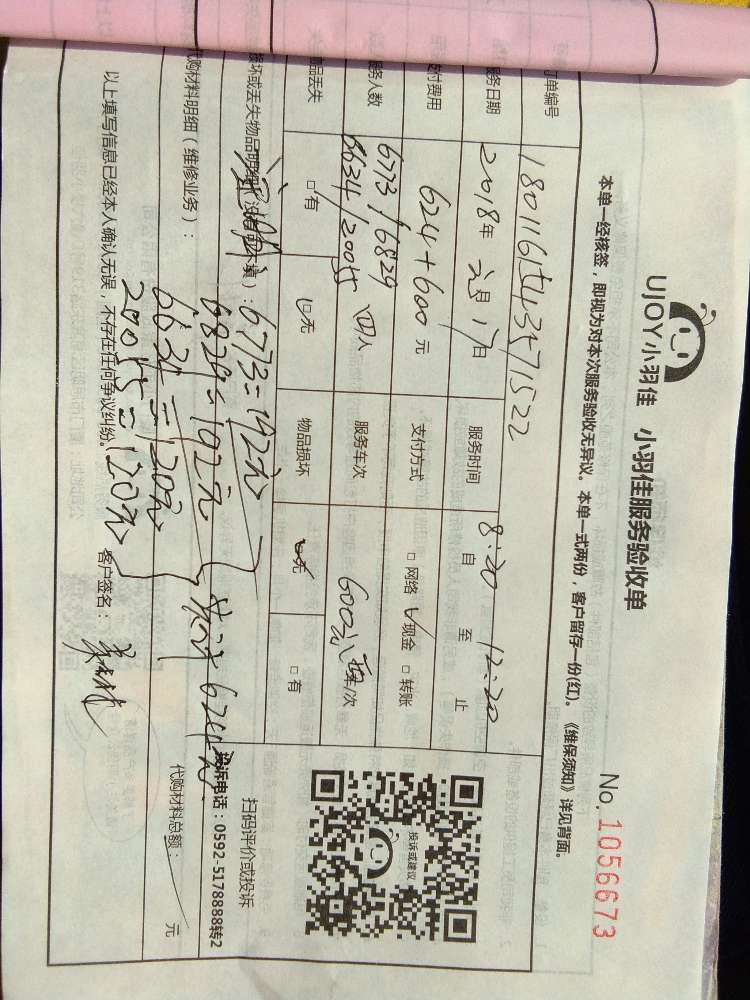 UJOY小羽佳 小羽佳服务验收单
No. 1056673
本单一经核签，即视为对本次服务验收无异议。本单一式两份，客户留存一份(红)。《维保须知》详见背面。
订单编号
服务日期 2018年 元月 17日 服务时间 8:20 自 至 12:20 止
付费用 624+600元 支付方式 □网络 ☑现金 □转账
服务人数 6773/6829 四人 服务车次 600元 车/次
6634/20055
品丢失 □有 ☑无 物品损坏 ☑无 □有
投诉或建议
扫码评价或投诉
投诉电话：0592-5178888转2
损坏或丢失物品明细（没有可不填）：6773=192元
6829=192元
6634=120元
20055=120元
共计624元
代购材料明细（维修业务）：
代购材料总额： 元
以上填写信息已经本人确认无误，不存在任何争议纠纷。 客户签名：